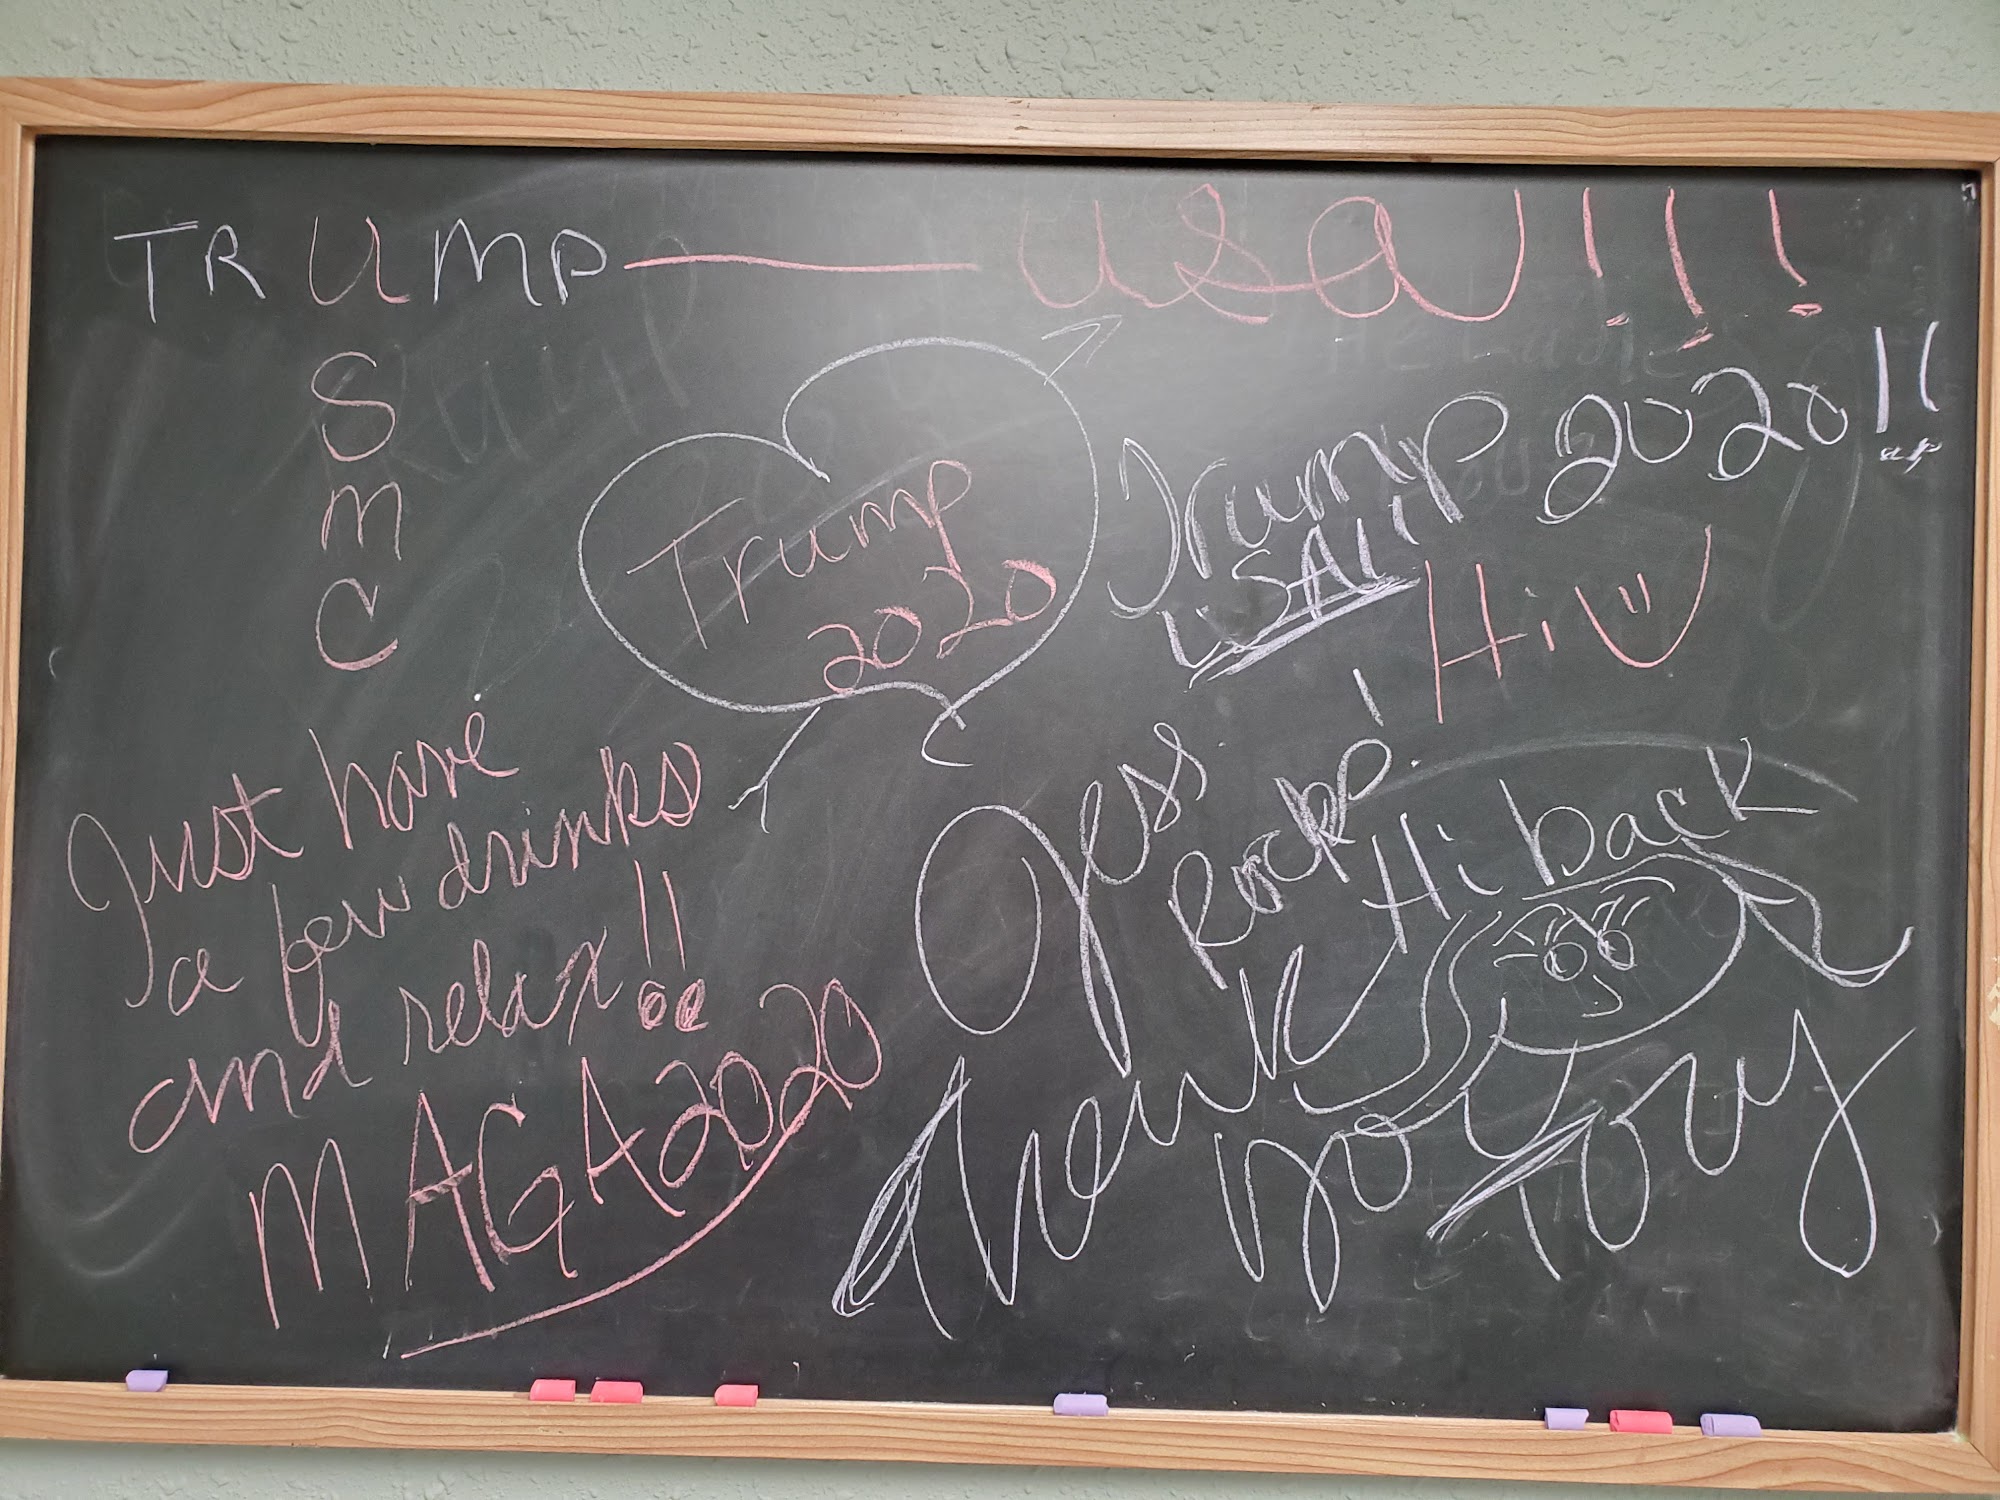 TRUMP USA!!!
S
M
C
Trump
2020
Trump 2020!!
USA!!
Hi
Just have
a few drinks
and relax!!
MAGA 2020
Jess
Rocks!
Hi back
Thank
you
Tony